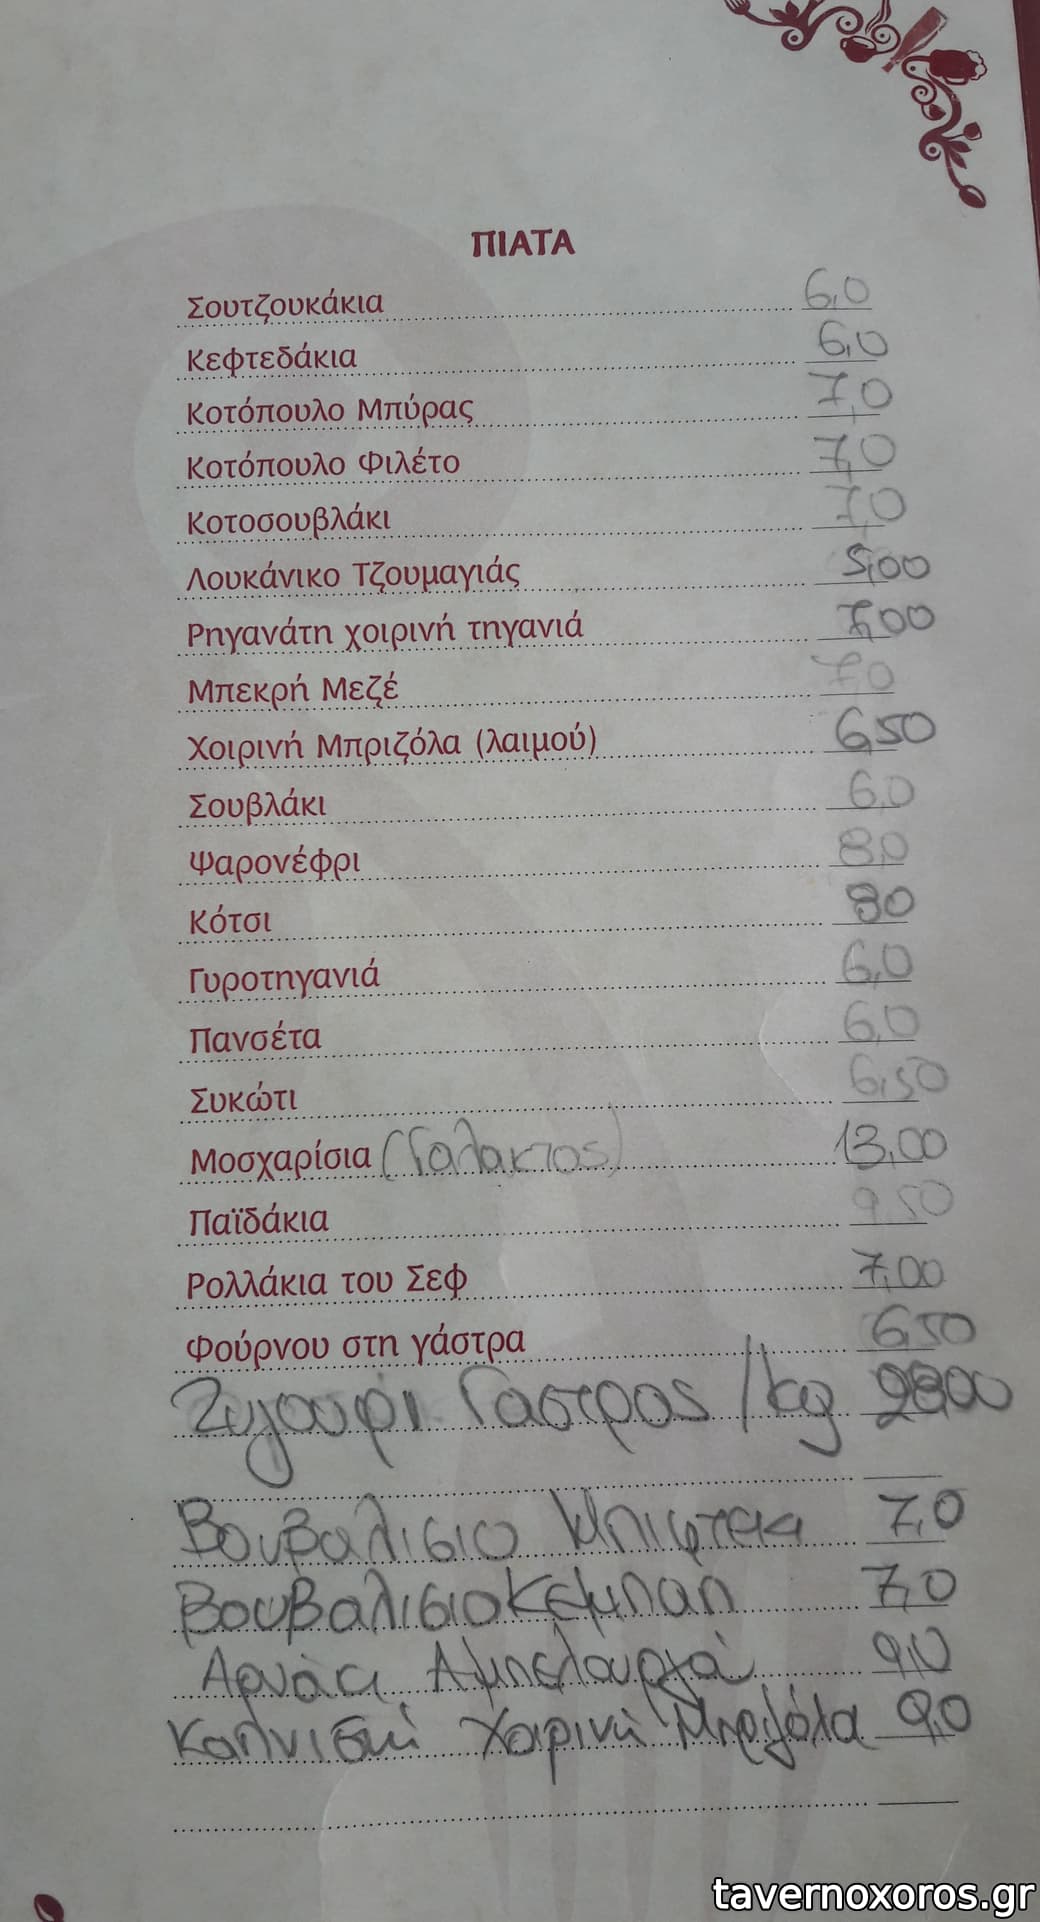 ΠΙΑΤΑ
Σουτζουκάκια 6,0
Κεφτεδάκια 6,0
Κοτόπουλο Μπύρας 7,0
Κοτόπουλο Φιλέτο 7,0
Κοτοσουβλάκι 7,0
Λουκάνικο Τζουμαγιάς 5,00
Ρηγανάτη χοιρινή τηγανιά 7,00
Μπεκρή Μεζέ 7,0
Χοιρινή Μπριζόλα (λαιμού) 6,50
Σουβλάκι 6,0
Ψαρονέφρι 8,0
Κότσι 80
Γυροτηγανιά 6,0
Πανσέτα 6,0
Συκώτι 6,50
Μοσχαρίσια (Γαλακτος) 13,00
Παϊδάκια 9,50
Ρολλάκια του Σεφ 7,00
Φούρνου στη γάστρα 6,50
Ζυγουρι Γαστρος /kg 28,00
Βουβαλισιο Μπιφτεκι 7,0
Βουβαλισιο Κεμπαπ 7,0
Αρνάκι Αμπελουργού 9,0
Καπνιστή Χοιρινή Μπριζόλα 9,0
tavernoxoros.gr